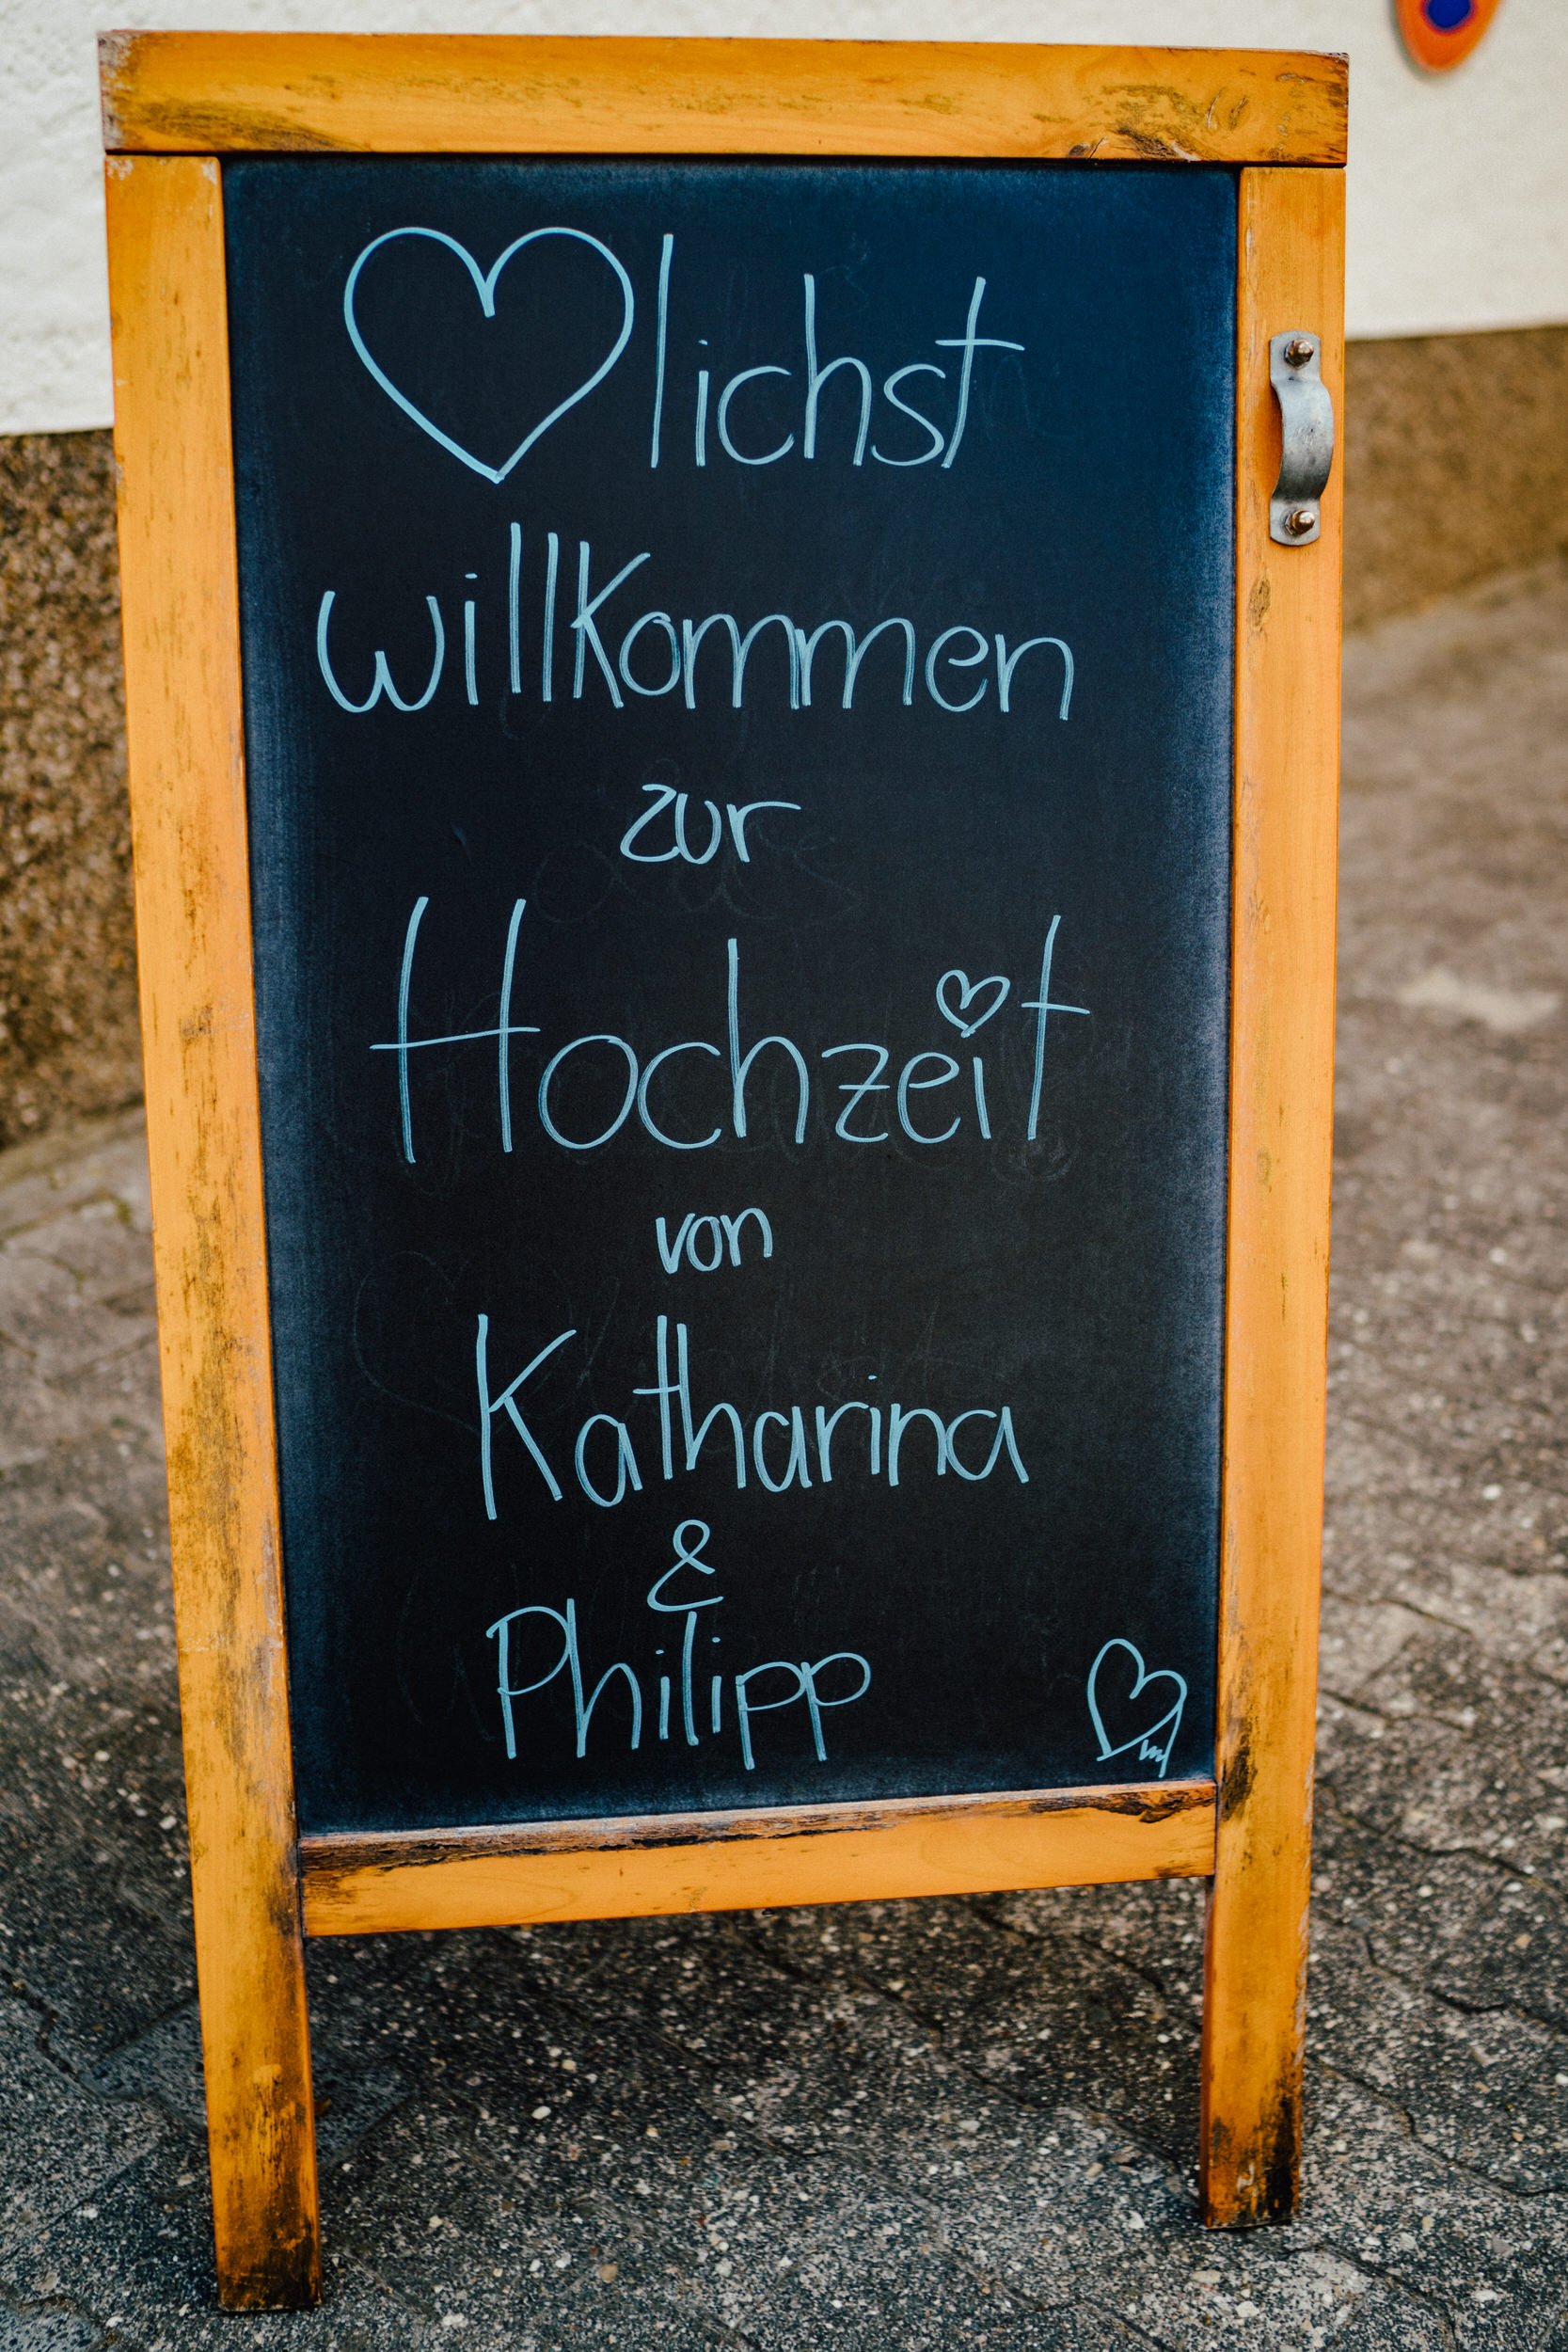 ♡lichst
willkommen
zur
Hochzeit
von
Katharina
&
Philipp